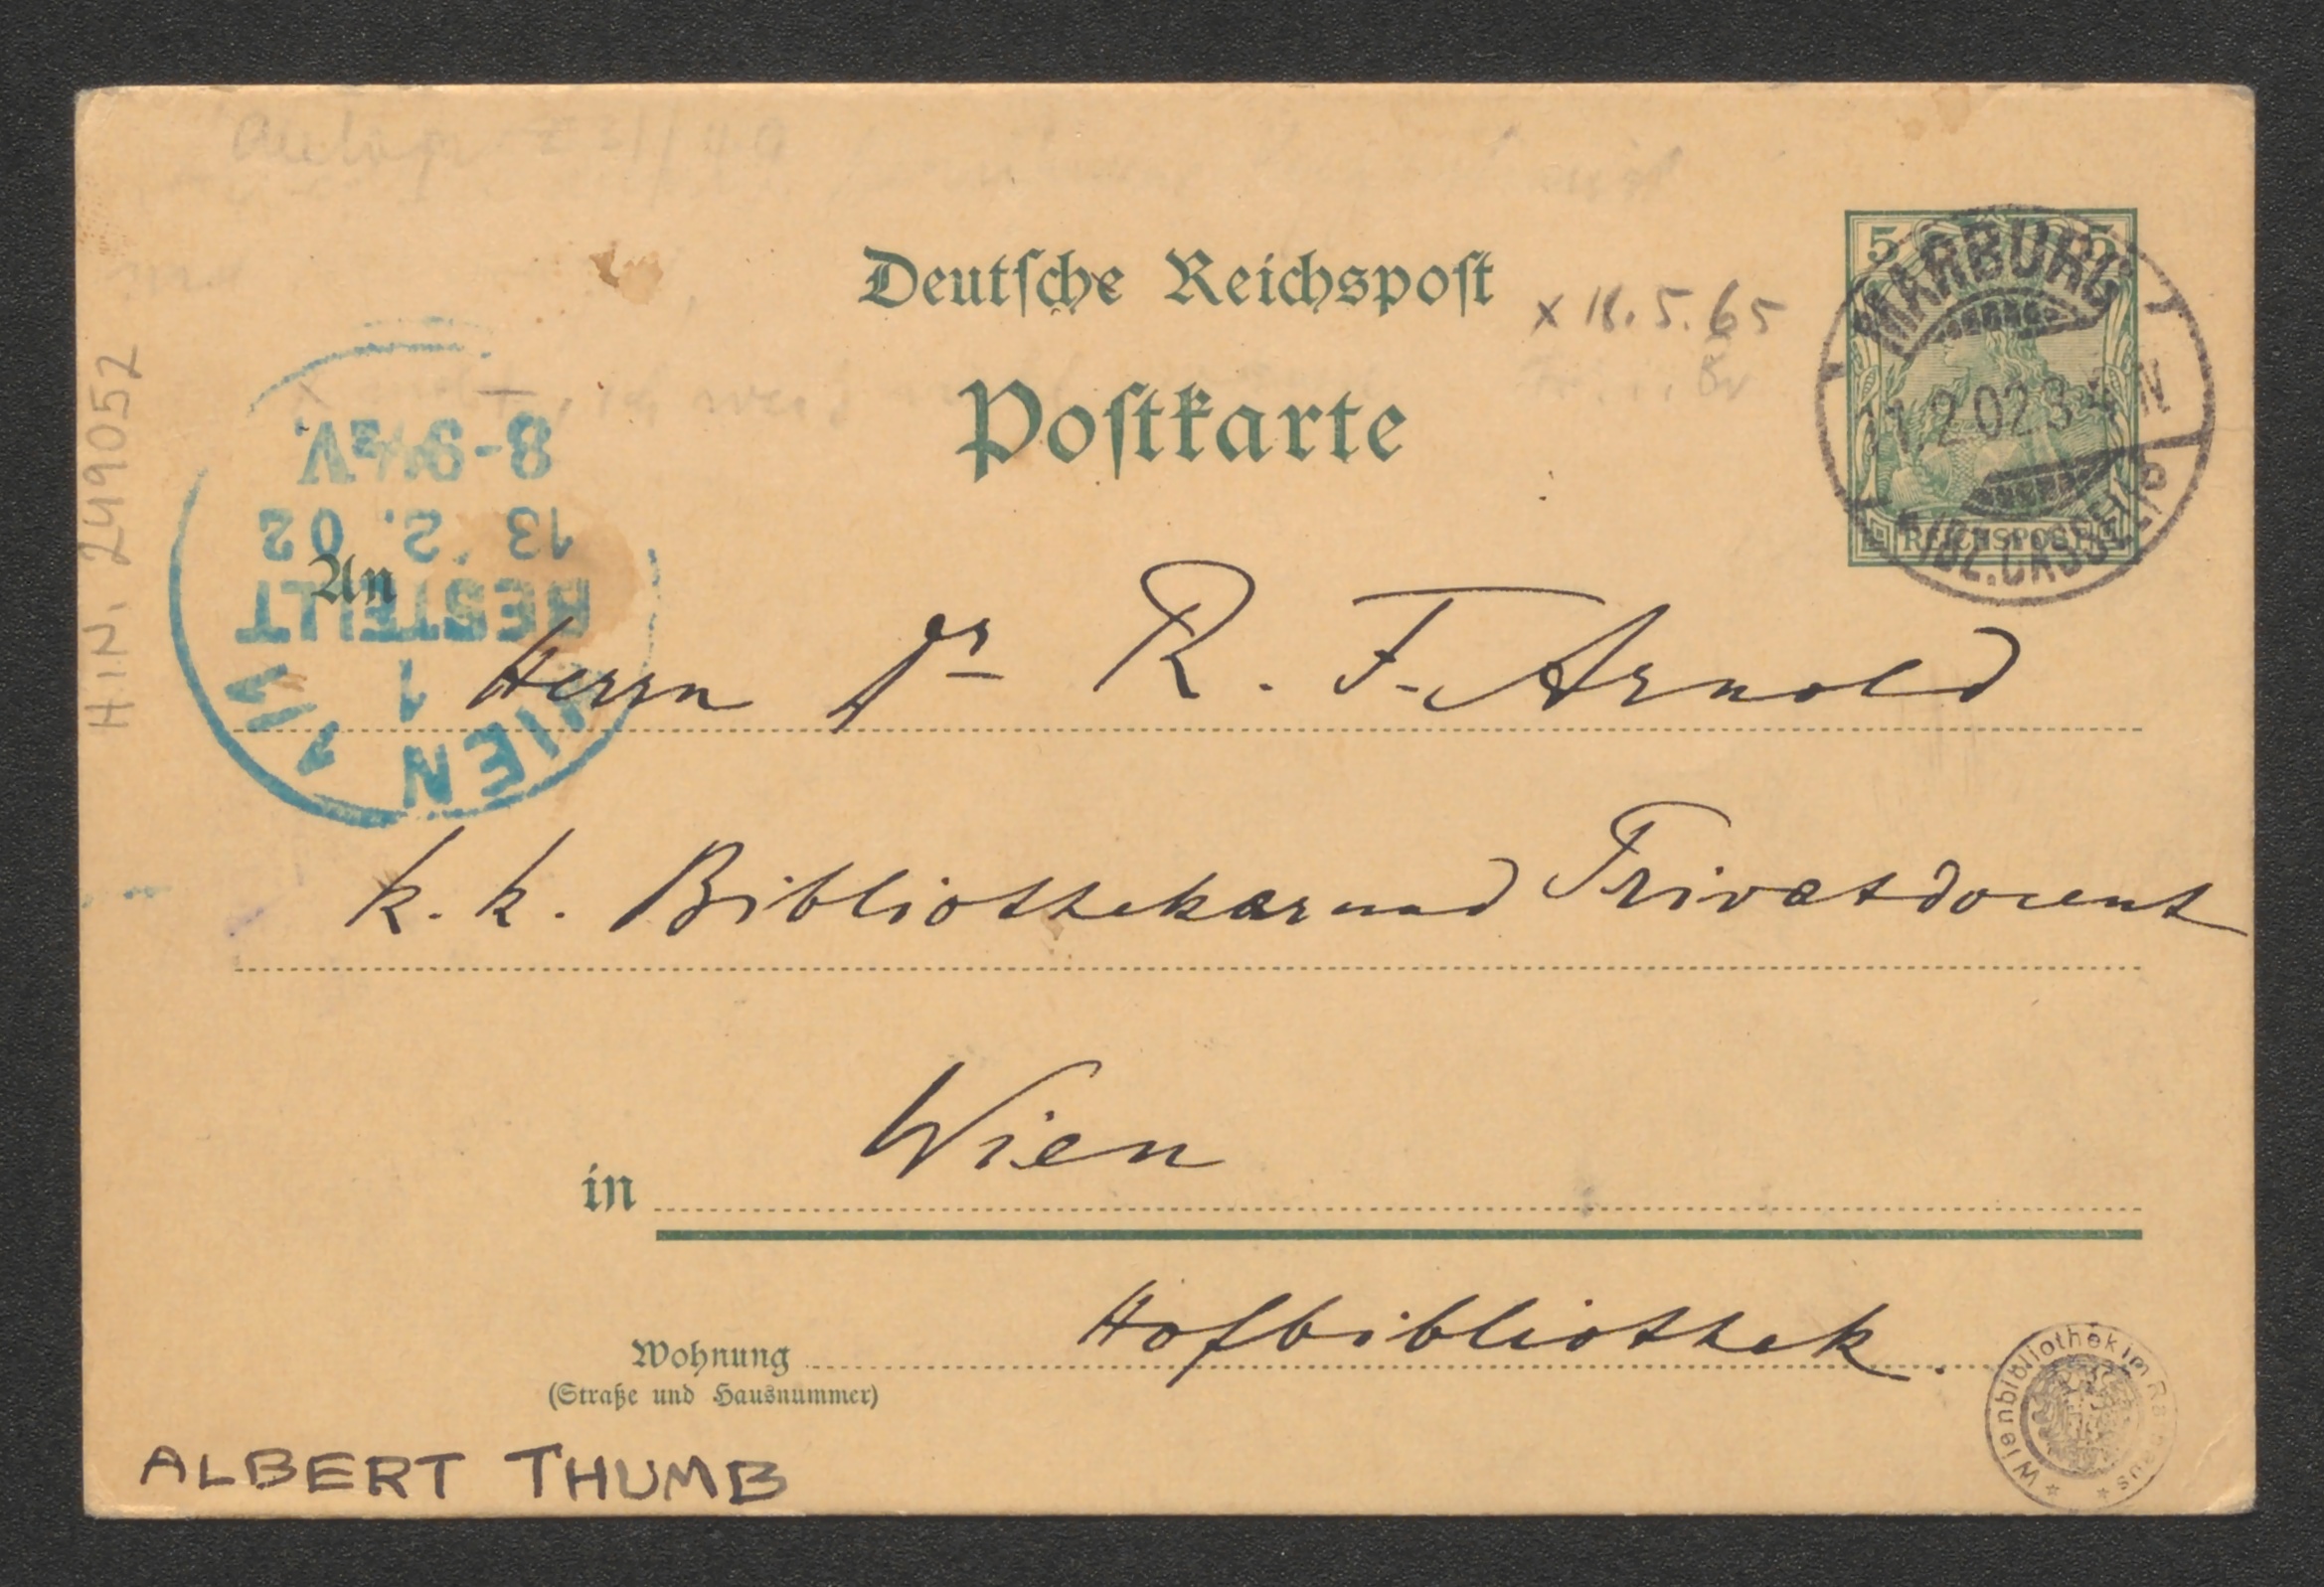 Deutsche Reichspost
x 18.5.65
Postkarte
5 5
REICHSPOST
MARBURG
1.2.02 3-4 N
WIEN 1
1
BESTELLT
13. 2. 02
8-9½V.
H.I.N. 249052
An
Herrn Dr R. F. Arnold
k. k. Bibliothekar und Privatdocent
in Wien
Wohnung Hofbibliothek.
(Straße und Hausnummer)
ALBERT THUMB
Wienbibliothek im Rathaus